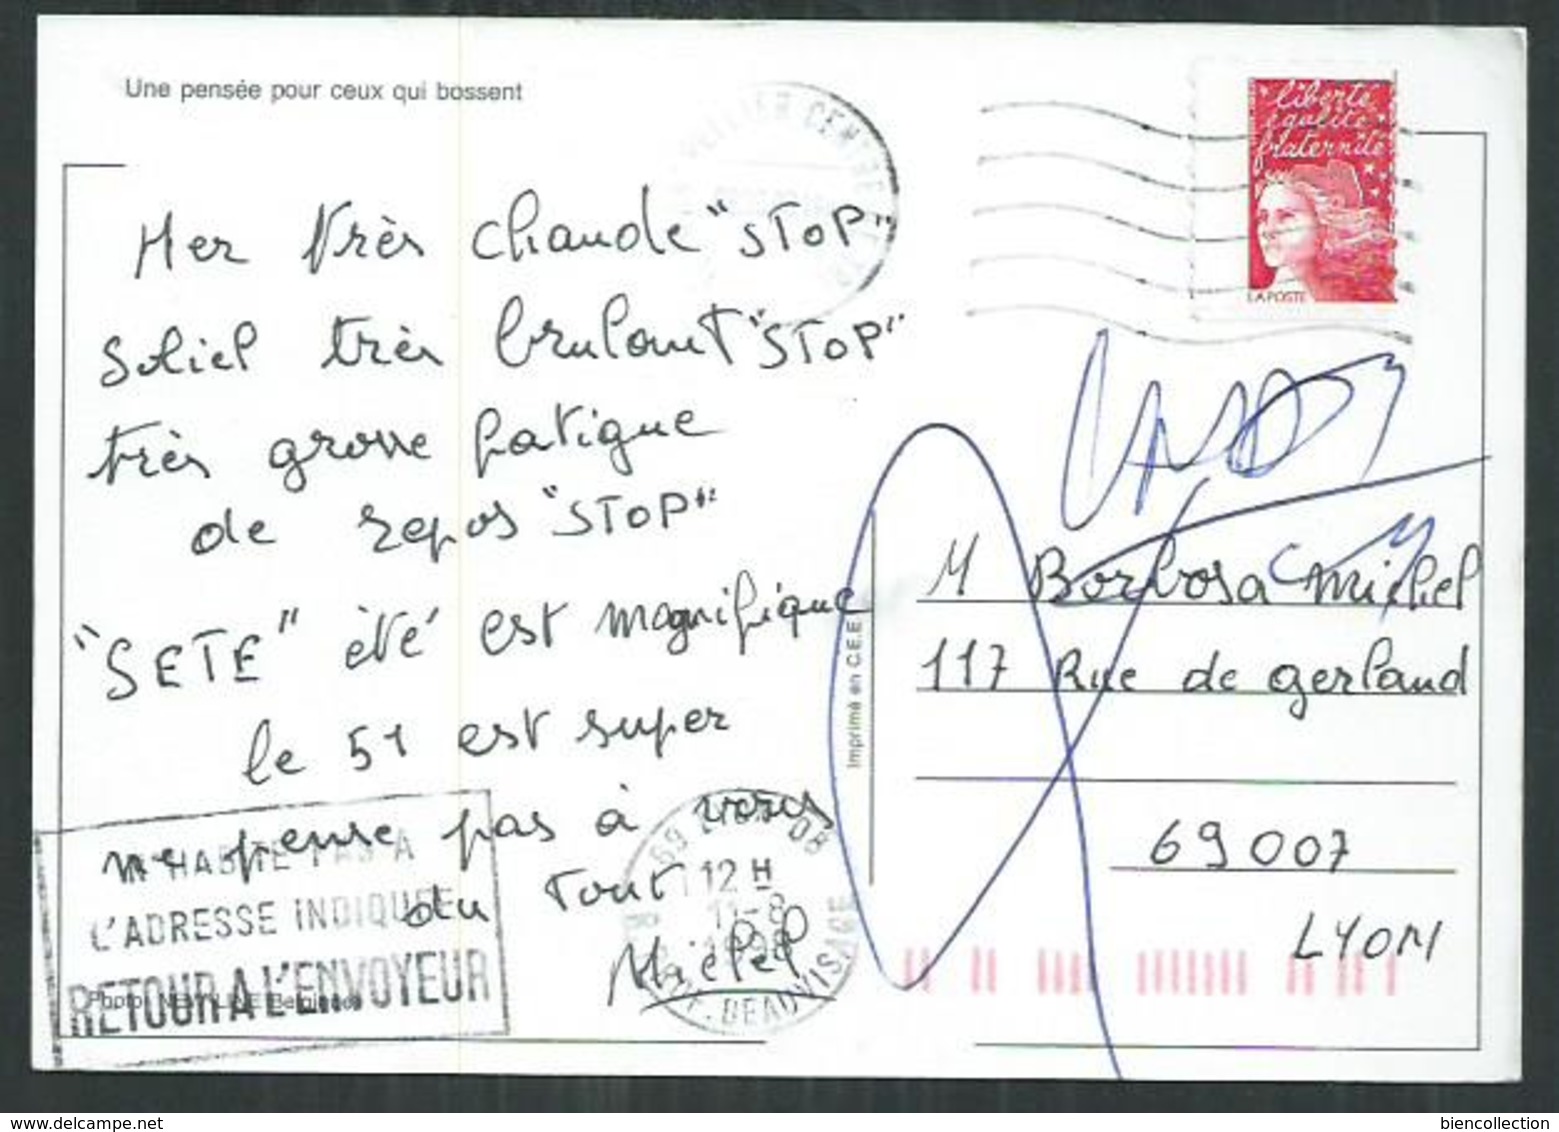 Une pensée pour ceux qui bossent
Mer très chaude "STOP"
Soliel très brulant "STOP"
très grosse fatigue
de repos "STOP"
"SETE" été est magnifique
le 51 est super
ne pense pas à vous
du Tout
Michel
liberté
égalité
fraternité
LA POSTE
M Barbosa Michel
117 Rue de gerland
69007
LYON
Imprimé en C.E.E
N'HABITE PAS A
L'ADRESSE INDIQUEE
RETOUR A L'ENVOYEUR
12 H
11-8
1998
BEAUVISAGE
CENTRE
biencollection